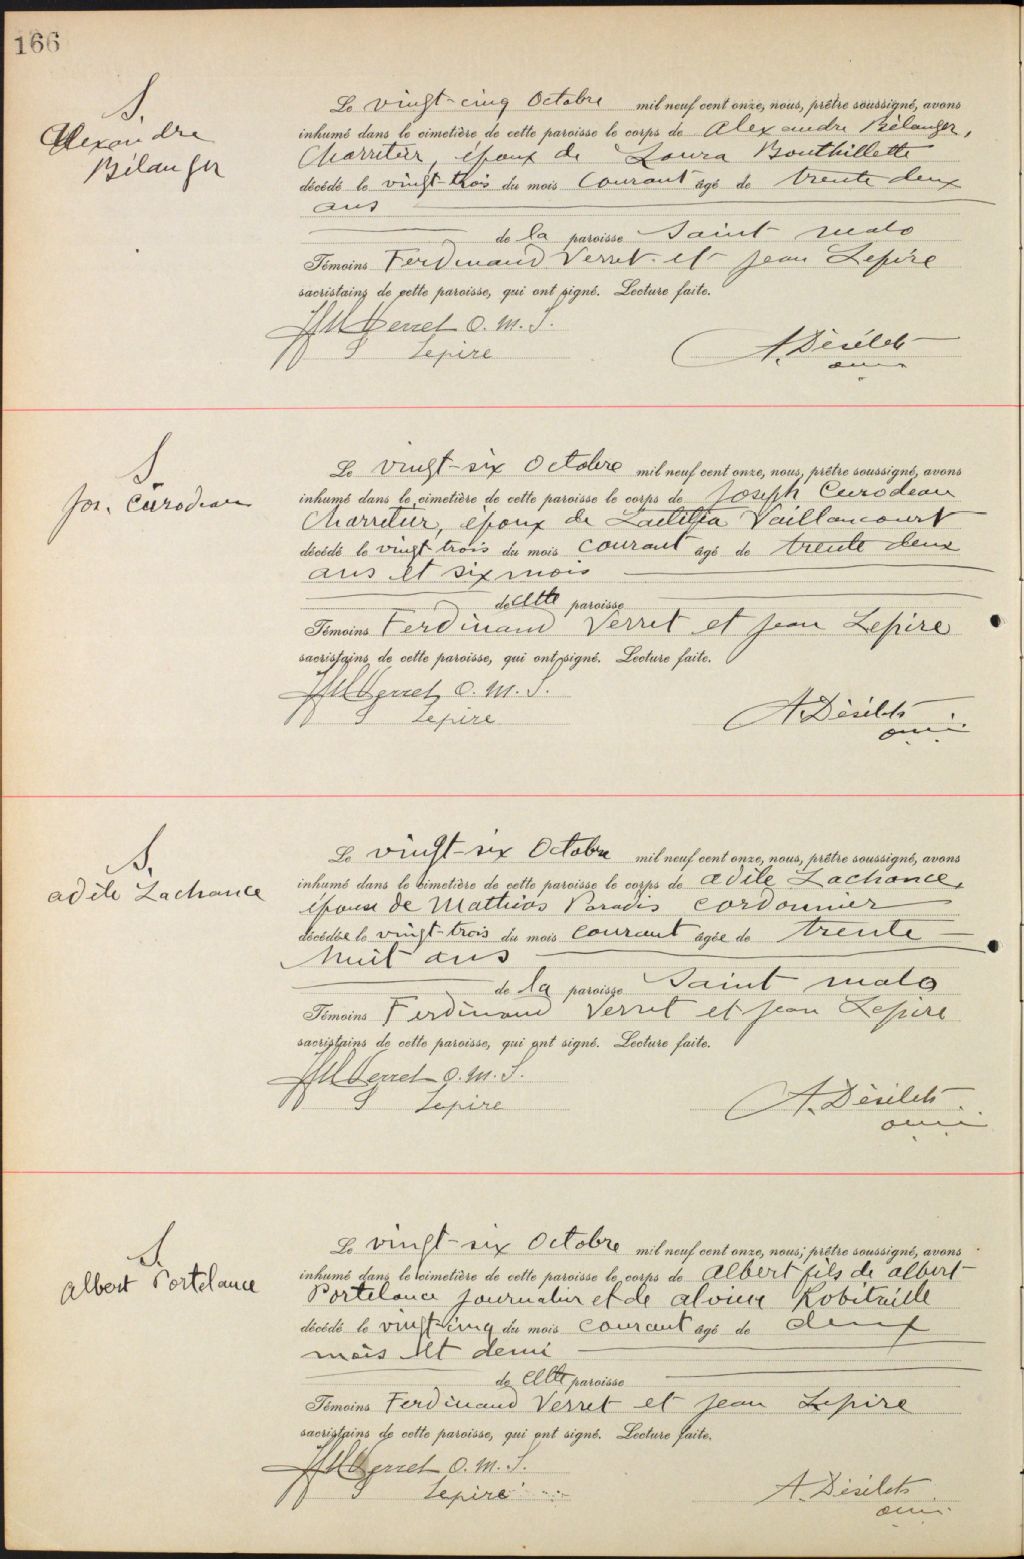 166
S.
Alexandre
Bélanger
Le vingt-cinq Octobre mil neuf cent onze, nous, prêtre soussigné, avons
inhumé dans le cimetière de cette paroisse le corps de Alexandre Bélanger,
Charretier, époux de Laura Bouthillette
décédé le vingt-trois du mois courant âgé de trente deux
ans
de la paroisse Saint malo
Témoins Ferdinand Verret et Jean Lepire
sacristains de cette paroisse, qui ont signé. Lecture faite.
Verret O. M. S.
J Lepire
A. Désilets
omi
S
Jos. Curodeau
Le vingt-six Octobre mil neuf cent onze, nous, prêtre soussigné, avons
inhumé dans le cimetière de cette paroisse le corps de Joseph Curodeau
Charretier, époux de Laetitia Vaillancourt
décédé le vingt trois du mois courant âgé de trente deux
ans et six mois
de cette paroisse
Témoins Ferdinand Verret et Jean Lepire
sacristains de cette paroisse, qui ont signé. Lecture faite.
Verret O. M. S.
J Lepire
A. Désilets
omi
S.
adèle Lachance
Le vingt-six Octobre mil neuf cent onze, nous, prêtre soussigné, avons
inhumé dans le cimetière de cette paroisse le corps de adèle Lachance,
épouse de Mathias Paradis cordonnier
décédée le vingt-trois du mois courant âgée de trente
huit ans
de la paroisse Saint malo
Témoins Ferdinand Verret et Jean Lepire
sacristains de cette paroisse, qui ont signé. Lecture faite.
Verret O. M. S.
J Lepire
A. Désilets
omi
S.
albert Portelance
Le vingt-six Octobre mil neuf cent onze, nous, prêtre soussigné, avons
inhumé dans le cimetière de cette paroisse le corps de albert fils de albert
Portelance journalier et de alvine Robitaille
décédé le vingt-cinq du mois courant âgé de deux
mois et demi
de cette paroisse
Témoins Ferdinand Verret et Jean Lepire
sacristains de cette paroisse, qui ont signé. Lecture faite.
Verret O. M. S.
J Lepire
A. Désilets
omi